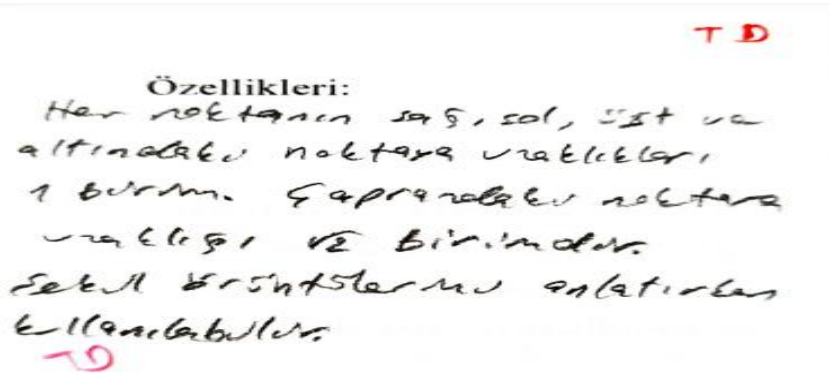 T D
Özellikleri:
Her noktanın sağı, sol, üst ve
altındaki noktaya uzaklıkları
1 birim. Çaprazdaki noktara
uzaklığı √2 birimdir.
Şekil örüntülerini anlatırken
kullanılabilir.
TD